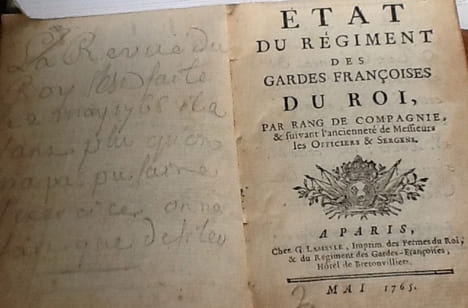 La Revue du
Roy s'est faitte
le may 1765 il a
tant plu qu'on
n'a pas pu faire
l'exercice on ne
fait que defiler
ETAT
DU RÉGIMENT
DES
GARDES FRANÇOISES
DU ROI,
PAR RANG DE COMPAGNIE,
& suivant l'ancienneté de Messieurs
les OFFICIERS & SERGENS.
A PARIS,
Chez G. LAMESLE, Imprim. des Fermes du Roi,
& du Régiment des Gardes-Françoises,
Hôtel de Bretonvilliers.
MAI 1765.
2